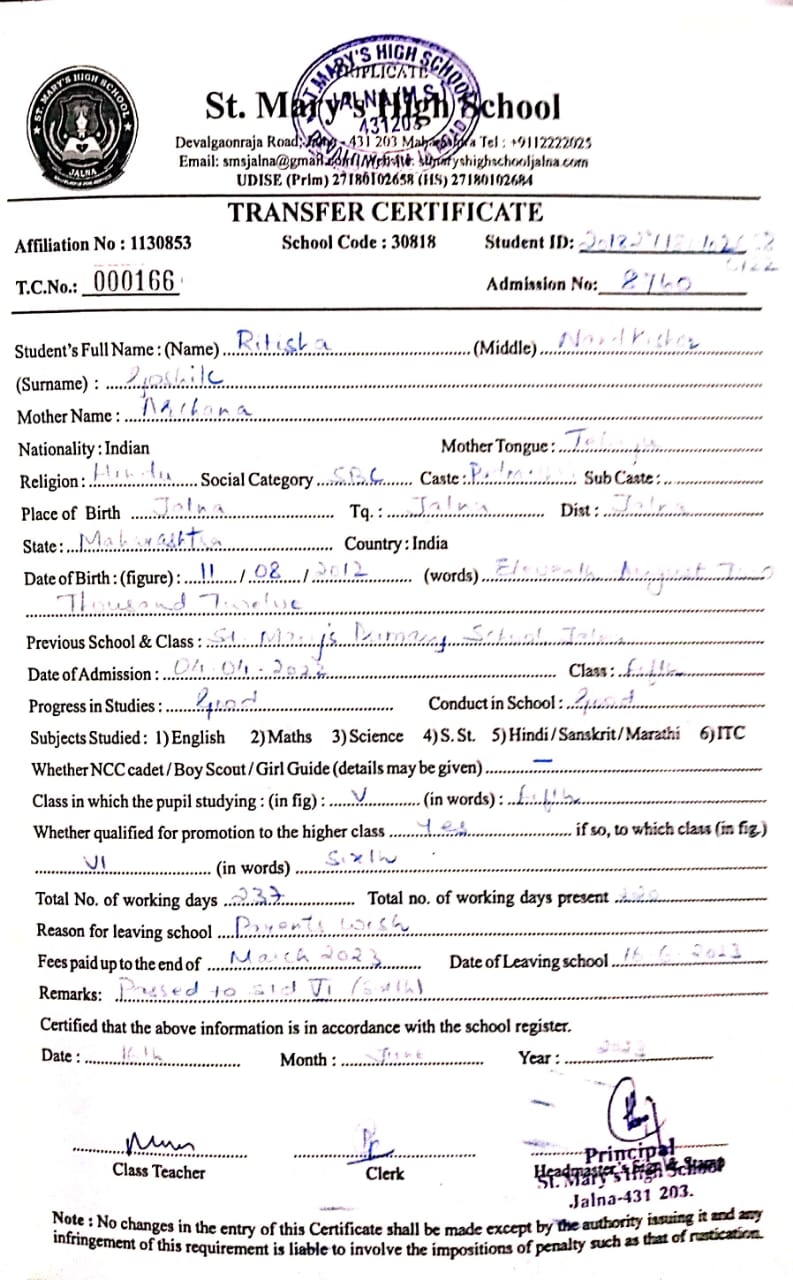 ST. MARY'S HIGH SCHOOL
JALNA
ST. MARY'S HIGH SCHOOL
JALNA (M.S.)
431203
St. Mary's High School
Devalgaonraja Road, Jalna - 431 203 Maharashtra Tel : +9112222025
Email: smsjalna@gmail.com / Website: stmaryshighschooljalna.com
UDISE (Prim) 27180102658 (HS) 27180102684
TRANSFER CERTIFICATE
Affiliation No : 1130853 School Code : 30818 Student ID:
T.C.No.: 000166 Admission No: 8760
Student's Full Name : (Name) Ritisha (Middle) Nandkishor
(Surname) :
Mother Name : Archana
Nationality : Indian Mother Tongue :
Religion : Hindu Social Category SBC Caste : Sub Caste :
Place of Birth Jalna Tq. : Jalna Dist : Jalna
State : Maharashtra Country : India
Date of Birth : (figure) : 11 / 08 / 2012 (words) Eleventh August Two
Thousand Twelve
Previous School & Class : St. Mary's Primary School Jalna
Date of Admission : 04-04-2022 Class : Fifth
Progress in Studies : Good Conduct in School : Good
Subjects Studied : 1) English 2) Maths 3) Science 4) S. St. 5) Hindi / Sanskrit / Marathi 6) ITC
Whether NCC cadet / Boy Scout / Girl Guide (details may be given) —
Class in which the pupil studying : (in fig) : V (in words) : Fifth
Whether qualified for promotion to the higher class Yes if so, to which class (in fig.)
VI (in words) Sixth
Total No. of working days 237 Total no. of working days present 220
Reason for leaving school Parents wish
Fees paid up to the end of March 2023 Date of Leaving school 16-6-2023
Remarks: Passed to std VI (Sixth)
Certified that the above information is in accordance with the school register.
Date : 16th Month : June Year : 2023
Class Teacher Clerk Headmaster's Sign & Stamp
Principal
St. Mary's High School
Jalna-431 203.
Note : No changes in the entry of this Certificate shall be made except by the authority issuing it and any
infringement of this requirement is liable to involve the impositions of penalty such as that of rustication.